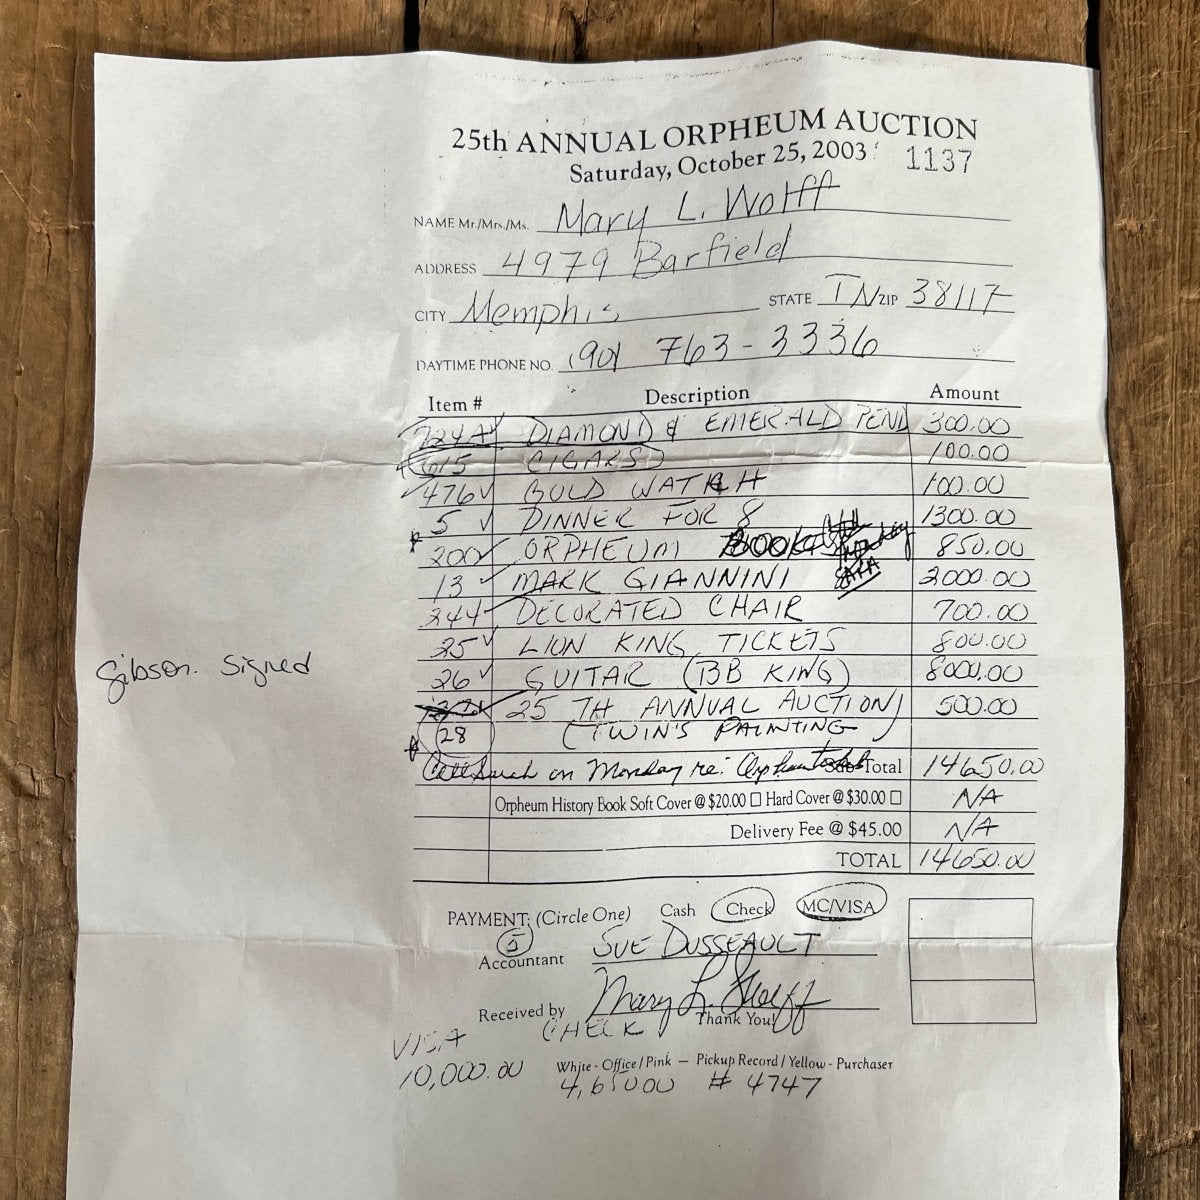 25th ANNUAL ORPHEUM AUCTION
Saturday, October 25, 2003 1137
NAME Mr./Mrs./Ms. Mary L. Wolff
ADDRESS 4979 Barfield
CITY Memphis STATE TN ZIP 38117
DAYTIME PHONE NO. (901 763-3336
Item # Description Amount
724A DIAMOND & EMERALD PEND 300.00
615 CIGARS 100.00
476 GOLD WATCH 100.00
5 DINNER FOR 8 1300.00
200 ORPHEUM 850.00
13 MARK GIANNINI 2000.00
244 DECORATED CHAIR 700.00
25 LION KING TICKETS 800.00
Gibson. Signed
26 GUITAR (BB KING) 8000.00
25 TH ANNUAL AUCTION 500.00
28 (TWIN'S PAINTING
on Monday re: Sub Total 14650.00
Orpheum History Book Soft Cover @ $20.00 ☐ Hard Cover @ $30.00 ☐ NA
Delivery Fee @ $45.00 NA
TOTAL 14650.00
PAYMENT: (Circle One) Cash Check MC/VISA
5
Accountant SUE DUSSEAULT
Received by Mary L. Wolff
Thank You!
VISA CHECK
White - Office / Pink — Pickup Record / Yellow - Purchaser
10,000.00 4,650.00 # 4747